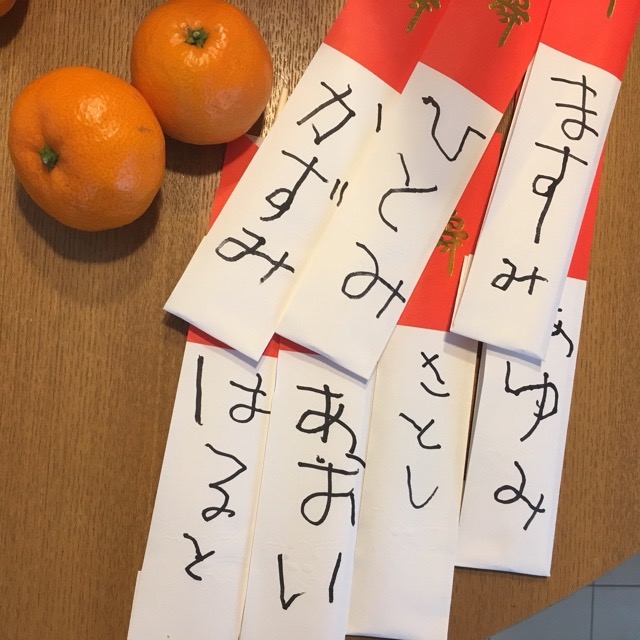 かずみ
ひとみ
ますみ
はると
あおい
さとし
あゆみ